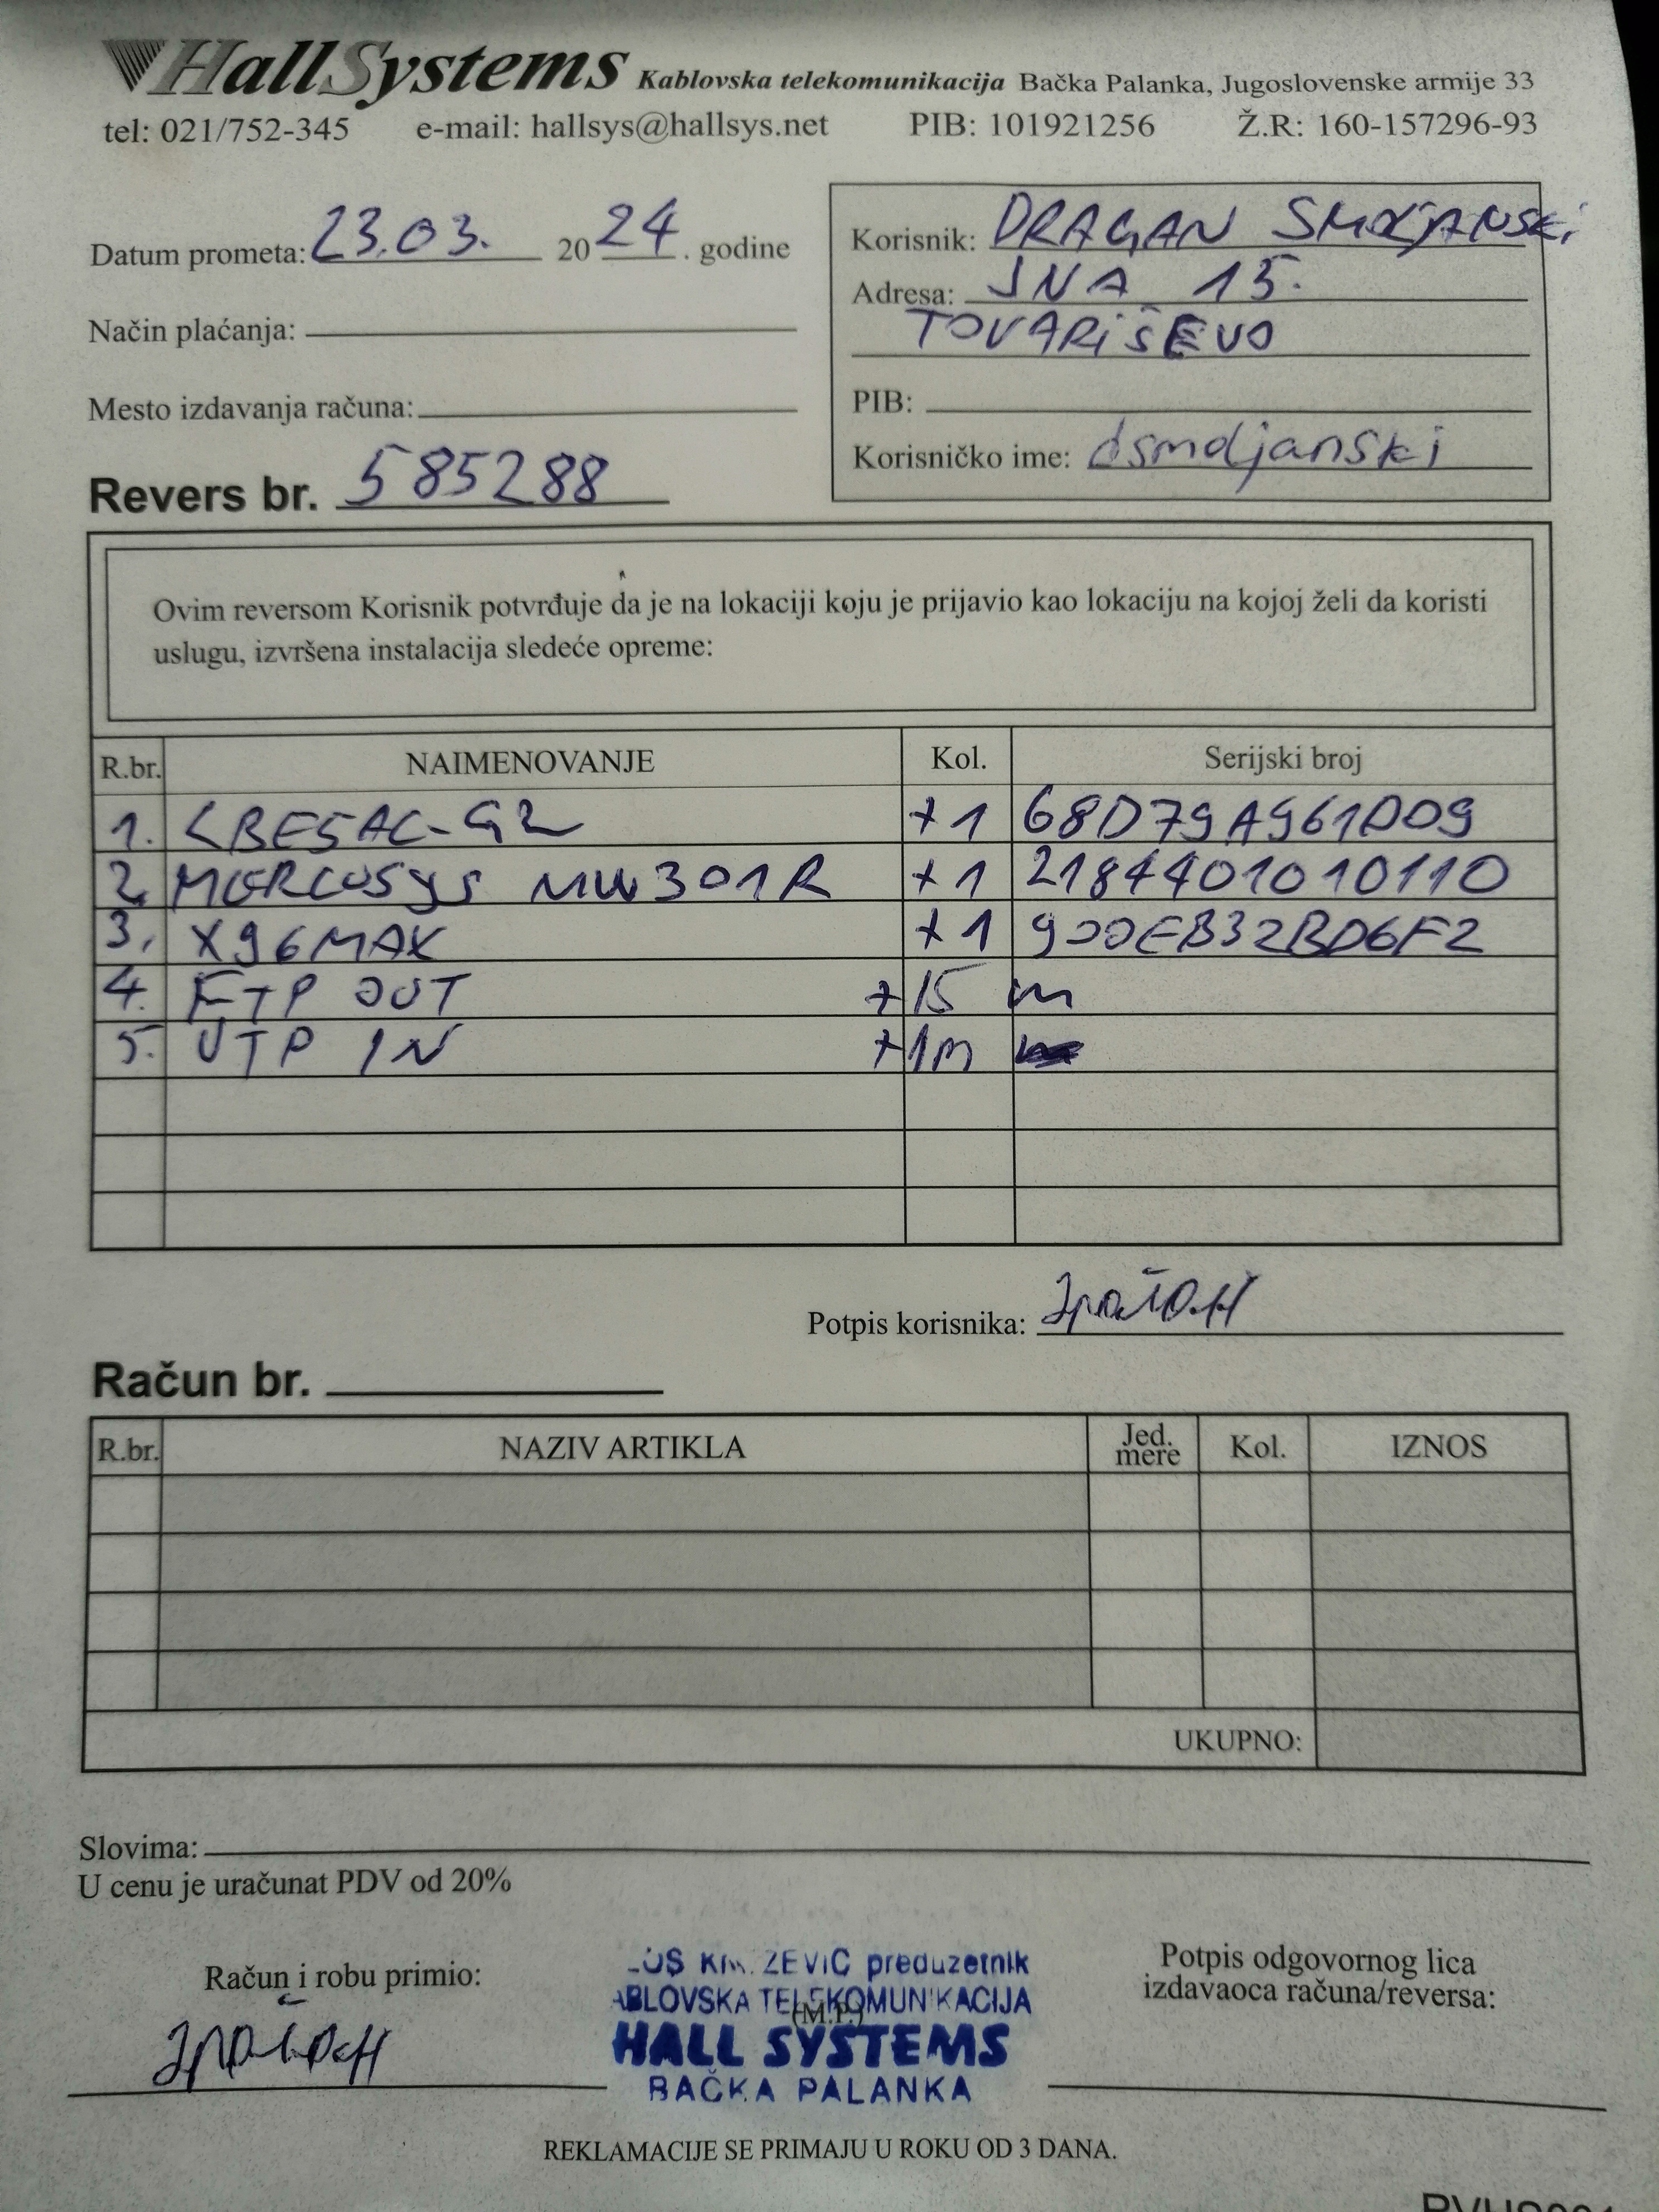 HallSystems Kablovska telekomunikacija Bačka Palanka, Jugoslovenske armije 33
tel: 021/752-345 e-mail: hallsys@hallsys.net PIB: 101921256 Ž.R: 160-157296-93
Datum prometa: 23.03. 2024. godine
Način plaćanja:
Mesto izdavanja računa:
Revers br. 585288
Korisnik: DRAGAN SMDJANSKi
Adresa: JNA 15.
TOVARiŠEVO
PIB:
Korisničko ime: dsmdjanski
Ovim reversom Korisnik potvrđuje da je na lokaciji koju je prijavio kao lokaciju na kojoj želi da koristi
uslugu, izvršena instalacija sledeće opreme:
R.br. NAIMENOVANJE Kol. Serijski broj
1. LBE5AC-G2 +1 68D79A961D09
2. MERCUSYS MW301R +1 2184401010110
3. X96MAX +1 900EB32BD6F2
4. FTP OUT +15 m
5. UTP IN +1m
Potpis korisnika:
Račun br.
R.br. NAZIV ARTIKLA Jed. mere Kol. IZNOS
UKUPNO:
Slovima:
U cenu je uračunat PDV od 20%
Račun i robu primio:
preduzetnik
TELEKOMUNIKACIJA
(M.P.)
HALL SYSTEMS
BAČKA PALANKA
Potpis odgovornog lica
izdavaoca računa/reversa:
REKLAMACIJE SE PRIMAJU U ROKU OD 3 DANA.